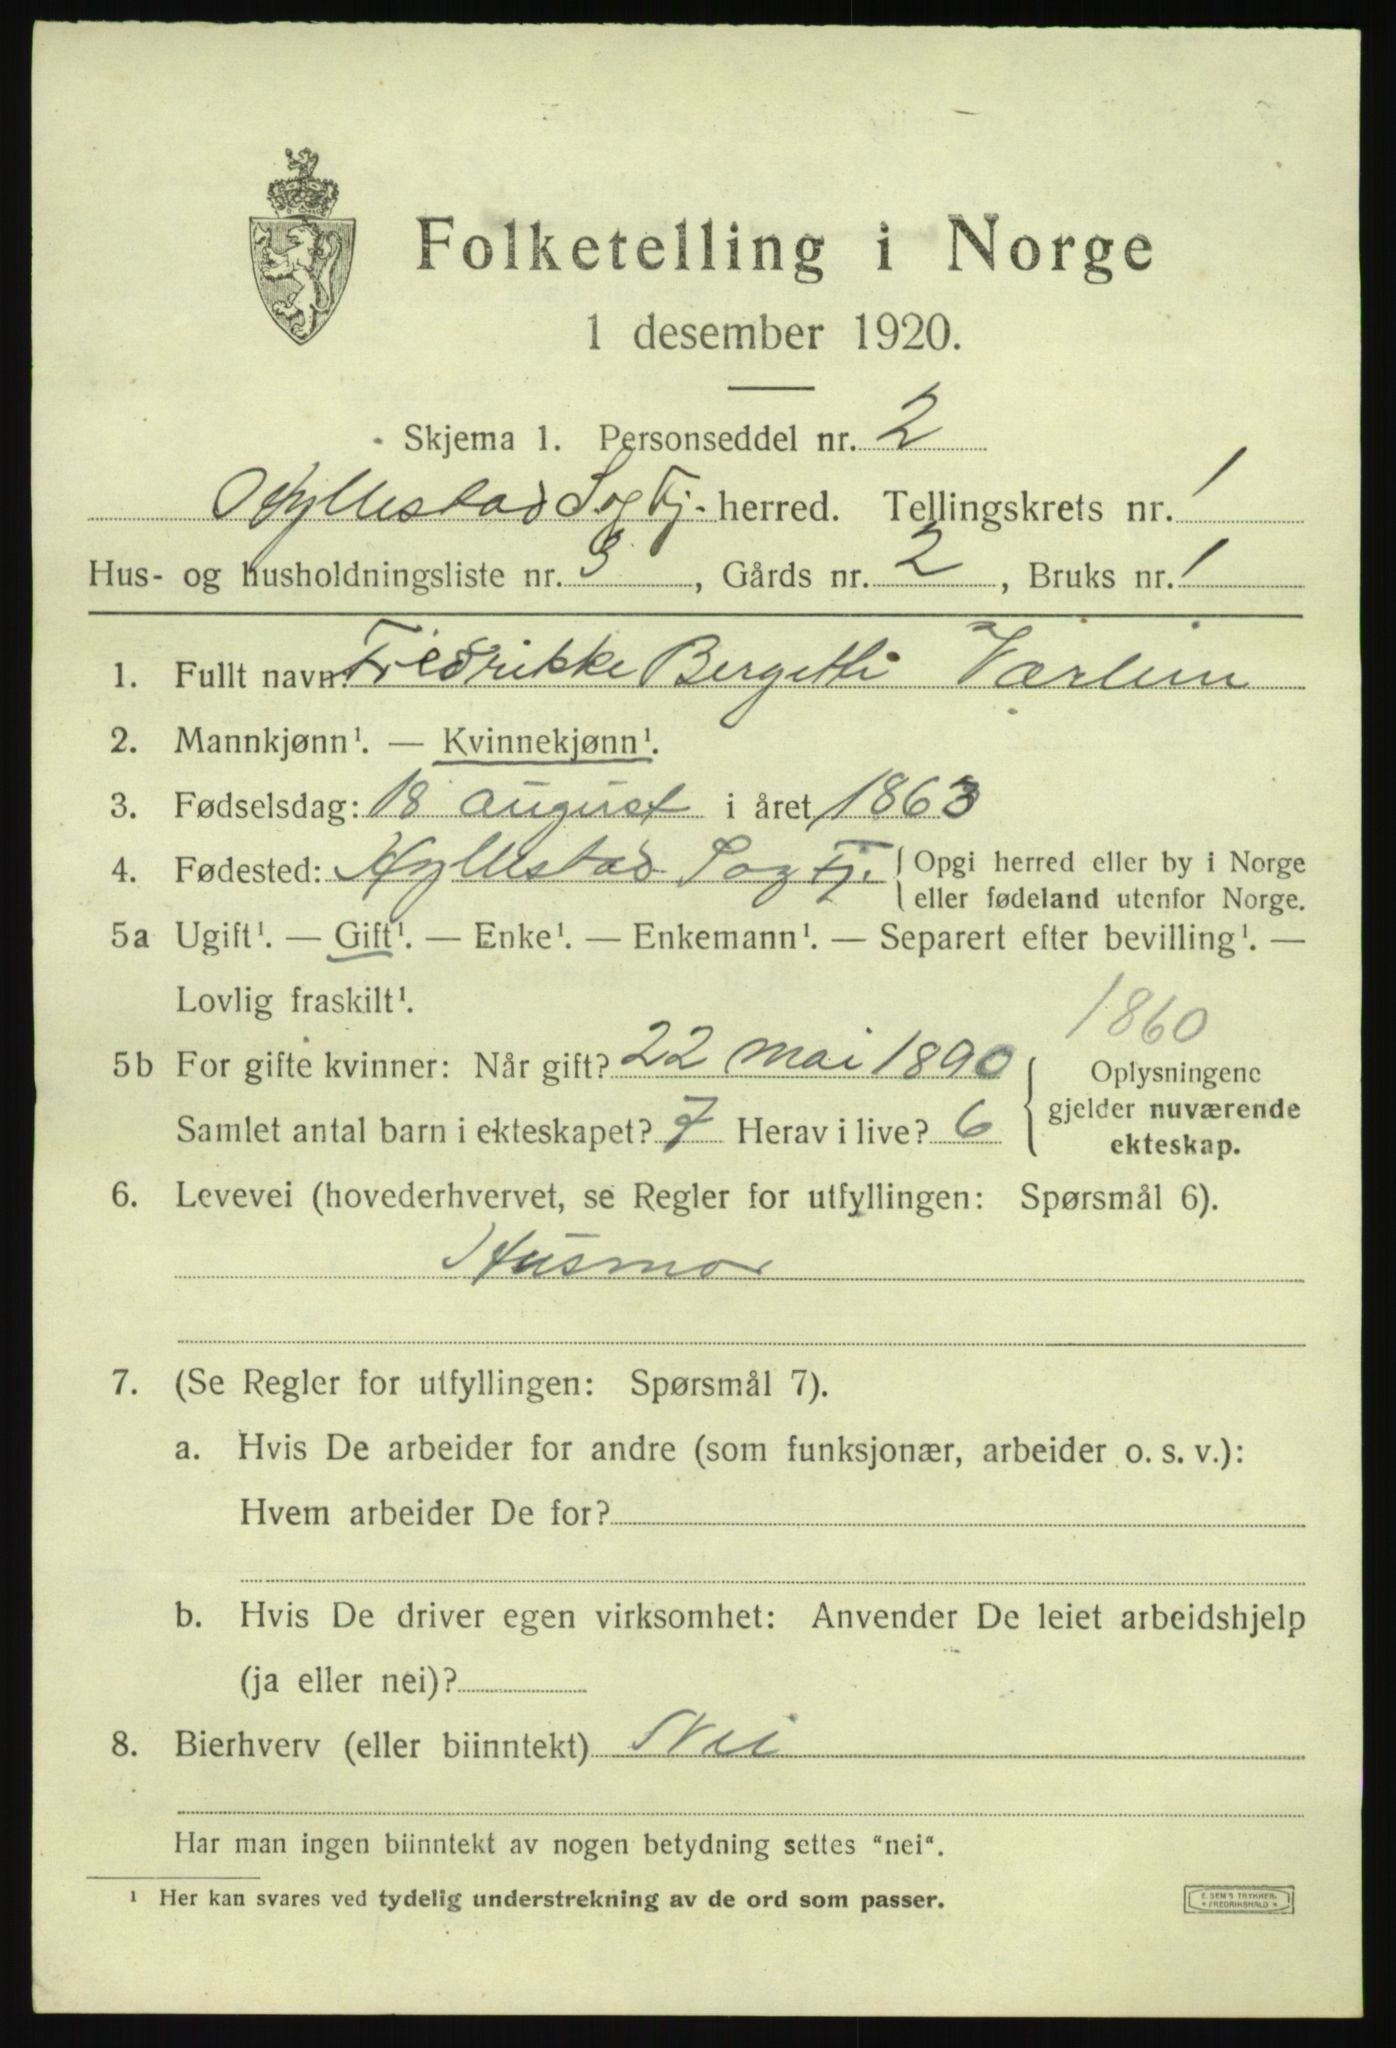 Folketelling i Norge
1 desember 1920.
Skjema 1. Personseddel nr. 2
Hyllestad Sog Fj. herred. Tellingskrets nr. 1
Hus- og husholdningsliste nr. 3, Gårds nr. 2, Bruks nr. 1
1. Fullt navn: Fredrikke Bergette Værlein
2. Mannkjønn¹. — Kvinnekjønn¹.
3. Fødselsdag: 18 august i året 1863
4. Fødested: Hyllestad Sog Fj. { Opgi herred eller by i Norge
eller fødeland utenfor Norge.
5a Ugift¹. — Gift¹. — Enke¹. — Enkemann¹. — Separert efter bevilling¹. —
Lovlig fraskilt¹.
1860
5b For gifte kvinner: Når gift? 22 mai 1890
Samlet antal barn i ekteskapet? 7 Herav i live? 6
Oplysningene
gjelder nuværende
ekteskap.
6. Levevei (hovederhvervet, se Regler for utfyllingen: Spørsmål 6).
Husmor
7. (Se Regler for utfyllingen: Spørsmål 7).
a. Hvis De arbeider for andre (som funksjonær, arbeider o. s. v.):
Hvem arbeider De for?
b. Hvis De driver egen virksomhet: Anvender De leiet arbeidshjelp
(ja eller nei)?
8. Bierhverv (eller biinntekt) Nei
Har man ingen biinntekt av nogen betydning settes "nei".
¹ Her kan svares ved tydelig understrekning av de ord som passer.
E. SEM'S TRYKKERI,
* FREDRIKSHALD *